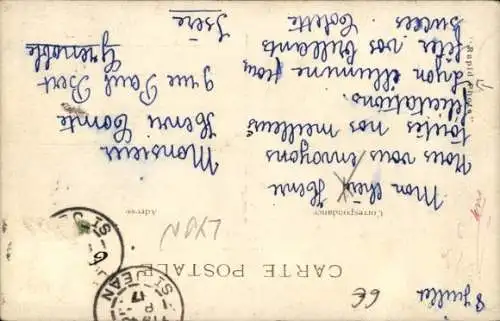 CARTE POSTALE
Correspondance
Adresse
8 juillet
Mon cher Henri
Nous vous envoyons
toutes nos meilleures
félicitations.
Lyon illumine pour
fêter vos brillants
succès. Colette
Monsieur
Henri Comte
9 rue Paul Bert
Grenoble
Isère
LYON
6€
ST JEAN
17
"Rapid-Photo"